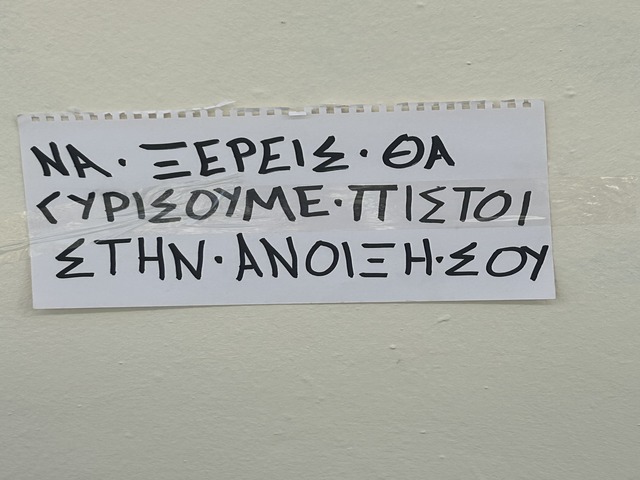 ΝΑ · ΞΕΡΕΙΣ · ΘΑ
ΓΥΡΙΣΟΥΜΕ · ΠΙΣΤΟΙ
ΣΤΗΝ · ΑΝΟΙΞΗ · ΣΟΥ